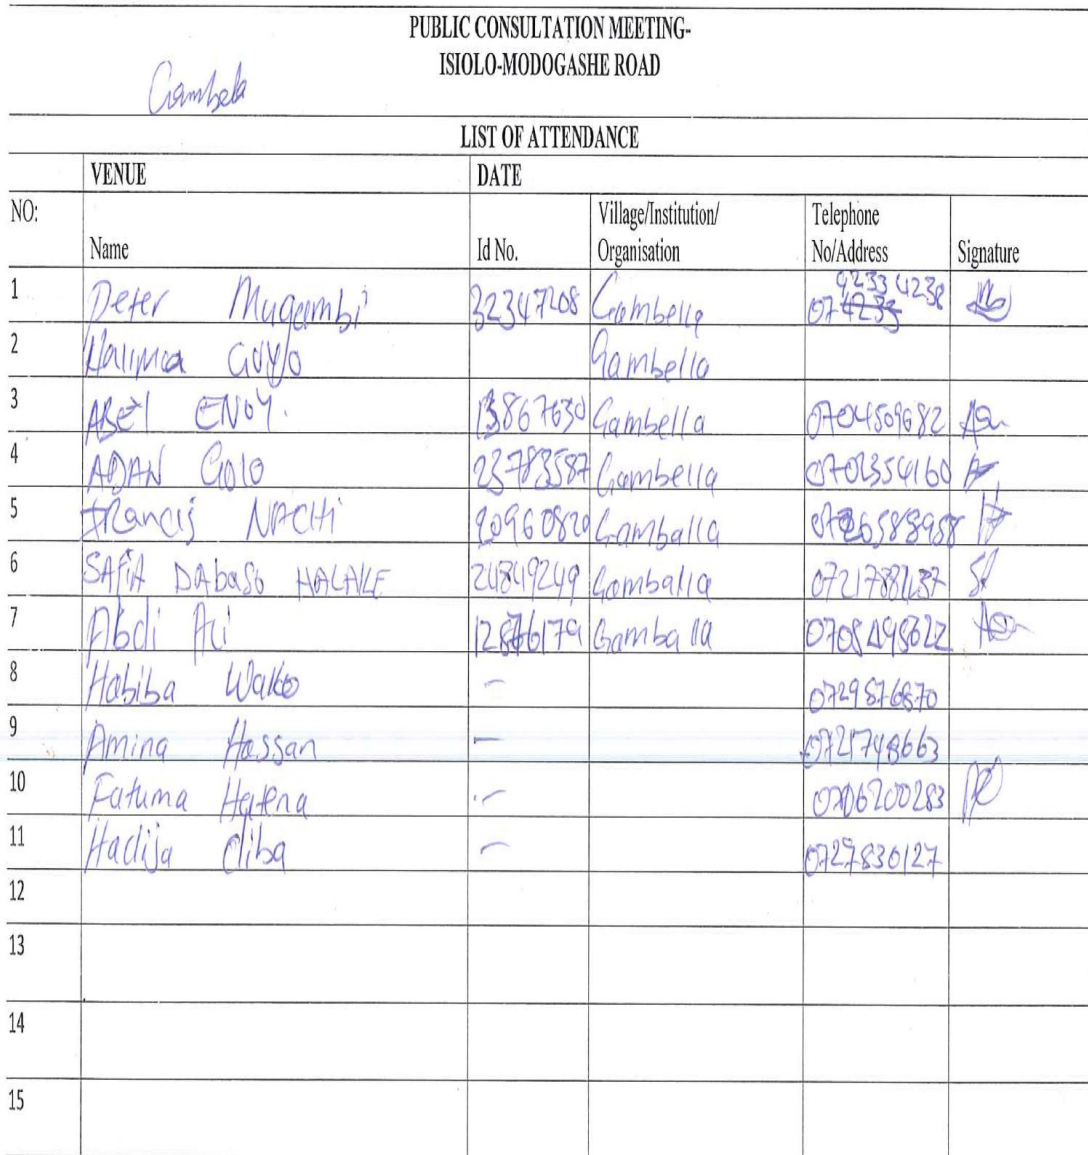 PUBLIC CONSULTATION MEETING-
ISIOLO-MODOGASHE ROAD
LIST OF ATTENDANCE
VENUE DATE
NO: Name Id No. Village/Institution/ Organisation Telephone No/Address Signature
1 Peter Mugambi 32347208 Gambella
2 Halima GUYO Gambella
3 ABEl ENOY. 13867630 Gambella 0704509682
4 ADAN GOlO 23783587 Gambella 0702354160
5 Francis 20960820 Gamballa
6 SAFIA DAbaso HALAKE 24849249 Gamballa
7 Abdi Ali Gamballa
8 Habiba Wako - 0729876870
9 Amina Hassan - 0721748663
10 Fatuma - 0706200283
11 Hadija diba - 0727830127
12
13
14
15